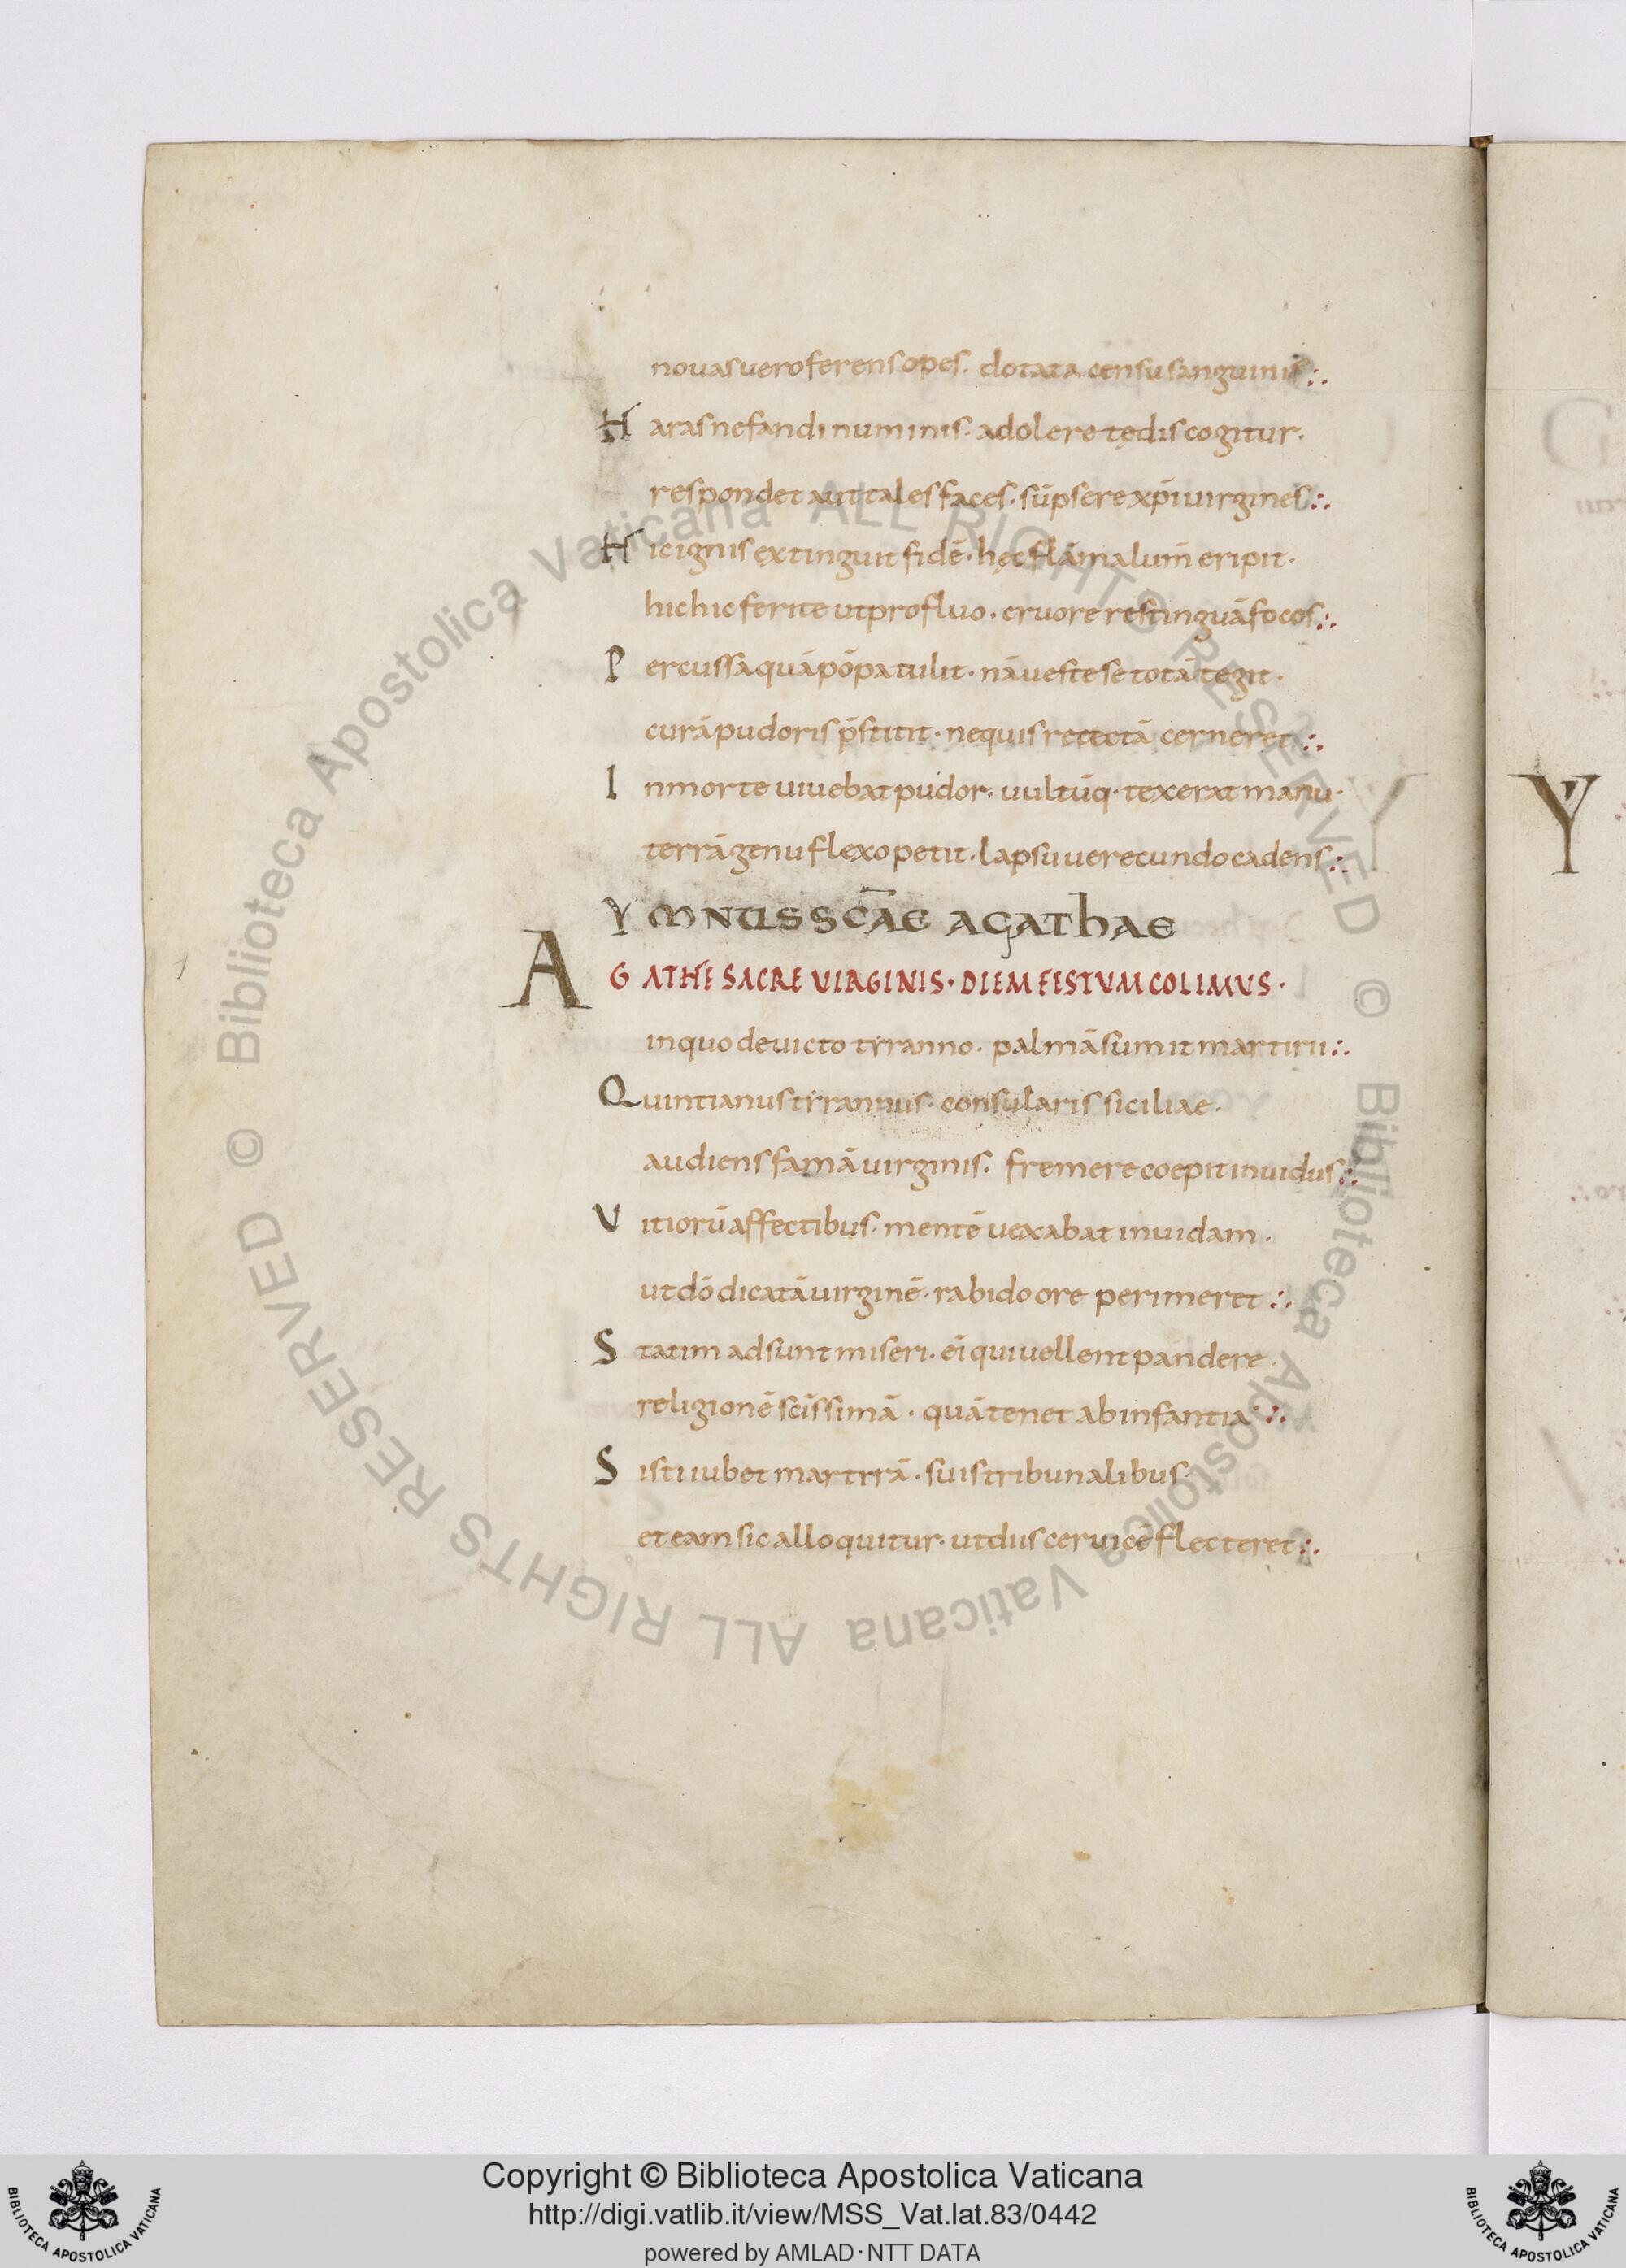 nouas uero ferens opes. dotata censu sanguinis:.
H aras nefandi numinis. adolere tędis cogitur.
respondet aut tales faces. sūpsere xp̄i uirgines:.
H ic ignis extinguit fidē. hęc flāma lumē eripit.
hic hic ferite ut profluo. cruore restinguā focos:.
P ercussa quā pōpa tulit. nā ueste se totā tegit.
curā pudoris p̄stitit. nequis retectā cerneret:.
I n morte uiuebat pudor. uultūq. texerat manu.
terrā genu flexo petit. lapsu uerecundo cadens:.
YMNUS SC̄AE AGATHAE
AGATHE SACRE VIRGINIS. DIEM FESTVM COLIMUS.
in quo deuicto tyranno. palmā sumit martirii:.
Quintianus tyrannus. consularis siciliae.
audiens famā uirginis. fremere coepit inuidus:.
V itiorū affectibus. mentē uexabat inuidam.
ut dō dicatā uirginē. rabido ore perimeret:.
S tatim adsunt miseri. ei qui uellent pandere.
religionē sc̄issimā. quā tenet ab infantia:.
S isti iubet martyrā. suis tribunalibus.
et eam sic alloquitur. ut diis ceruicē flecteret:.
Y
© Biblioteca Apostolica Vaticana ALL RIGHTS RESERVED © Biblioteca Apostolica Vaticana ALL RIGHTS RESERVED
Copyright © Biblioteca Apostolica Vaticana
http://digi.vatlib.it/view/MSS_Vat.lat.83/0442
powered by AMLAD·NTT DATA
BIBLIOTECA APOSTOLICA VATICANA
BIBLIOTECA APOSTOLICA VATICANA